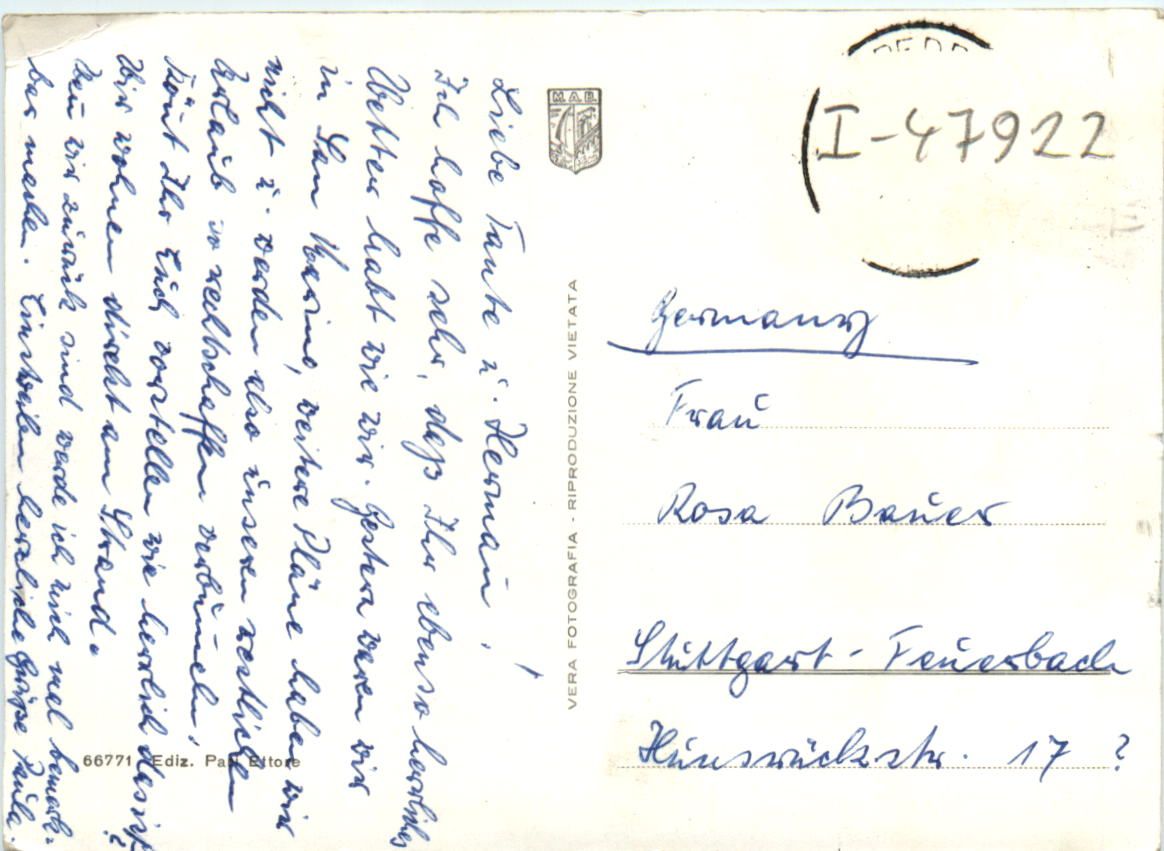 Liebe Tante u. Hermann!
Ich hoffe sehr, daß Ihr ebenso herrliches
Wetter habt wie wir. Gestern waren wir
in San Marino, weitere Pläne haben wir
nicht u. werden also unseren restlichen
Urlaub so rechtschaffen verbummeln,
könnt Ihr Euch vorstellen wie herrlich das ist?
Wir wohnen direkt am Strand.
Wenn wir zurück sind werde ich mich mal bemerk-
bar machen. Einsweilen herzliche Grüße Paula.
66771 Ediz. Ettore
M.A.B.
VERA FOTOGRAFIA - RIPRODUZIONE VIETATA
I-47922
Germany
Frau
Rosa Bauer
Stuttgart-Feuerbach
Hunsrückstr. 17?